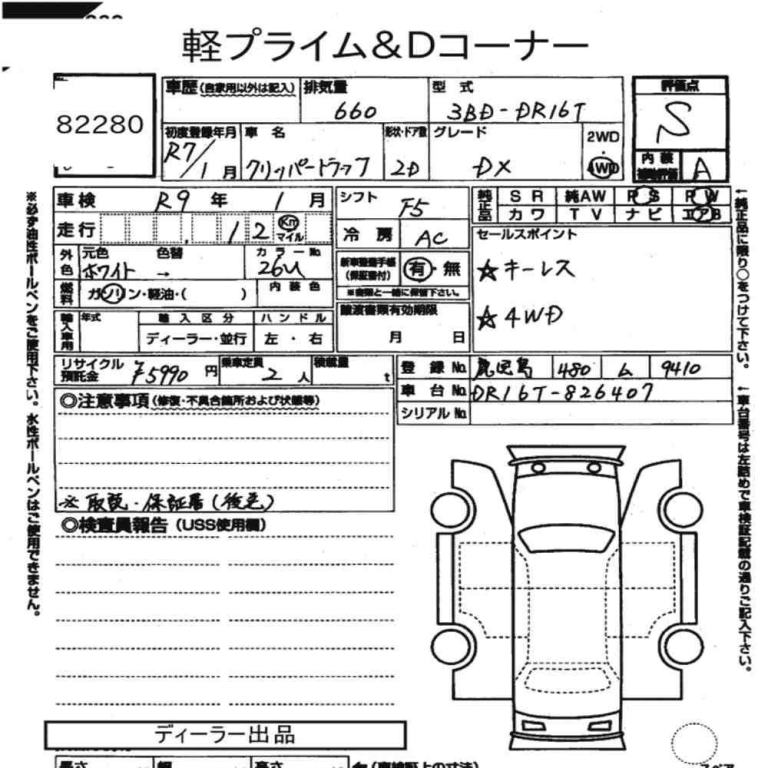 軽プライム&Dコーナー
82280
車歴 (自家用以外は記入) 排気量 660
型式 3BD-DR16T
評価点 S
初度登録年月 R7/1月
車名 クリッパートラック
形状・ドア数 2D
グレード DX
2WD
4WD
内装補助評価 A
車検 R9年 1月
走行 12 Km マイル
シフト F5
冷房 AC
純正品 SR 純AW PS PW
カワ TV ナビ エアB
外色 元色 ホワイト 色替 → カラーNo 26U
燃料 ガソリン・軽油・( ) 内装色
新車整備手帳(保証書付) 有・無
※書類と一緒に保管下さい。
セールスポイント
☆キーレス
☆4WD
輸入車用 年式 輸入区分 ハンドル
ディーラー・並行 左・右
譲渡書類有効期限
月 日
リサイクル預託金 ¥5990円 乗車定員 2人 積載量 t
登録No. 鹿児島 480 ム 9410
車台No. DR16T-826407
シリアルNo.
◎注意事項 (修復・不具合箇所および状態等)
※取説・保証書(後送)
◎検査員報告 (USS使用欄)
ディーラー出品
長さ 幅 高さ (車検証上の寸法)
スペア
※必ず油性ボールペンをご使用下さい。水性ボールペンはご使用できません。
←純正品に限り○をつけて下さい。
←車台番号は左詰めで車検証記載の通りご記入下さい。